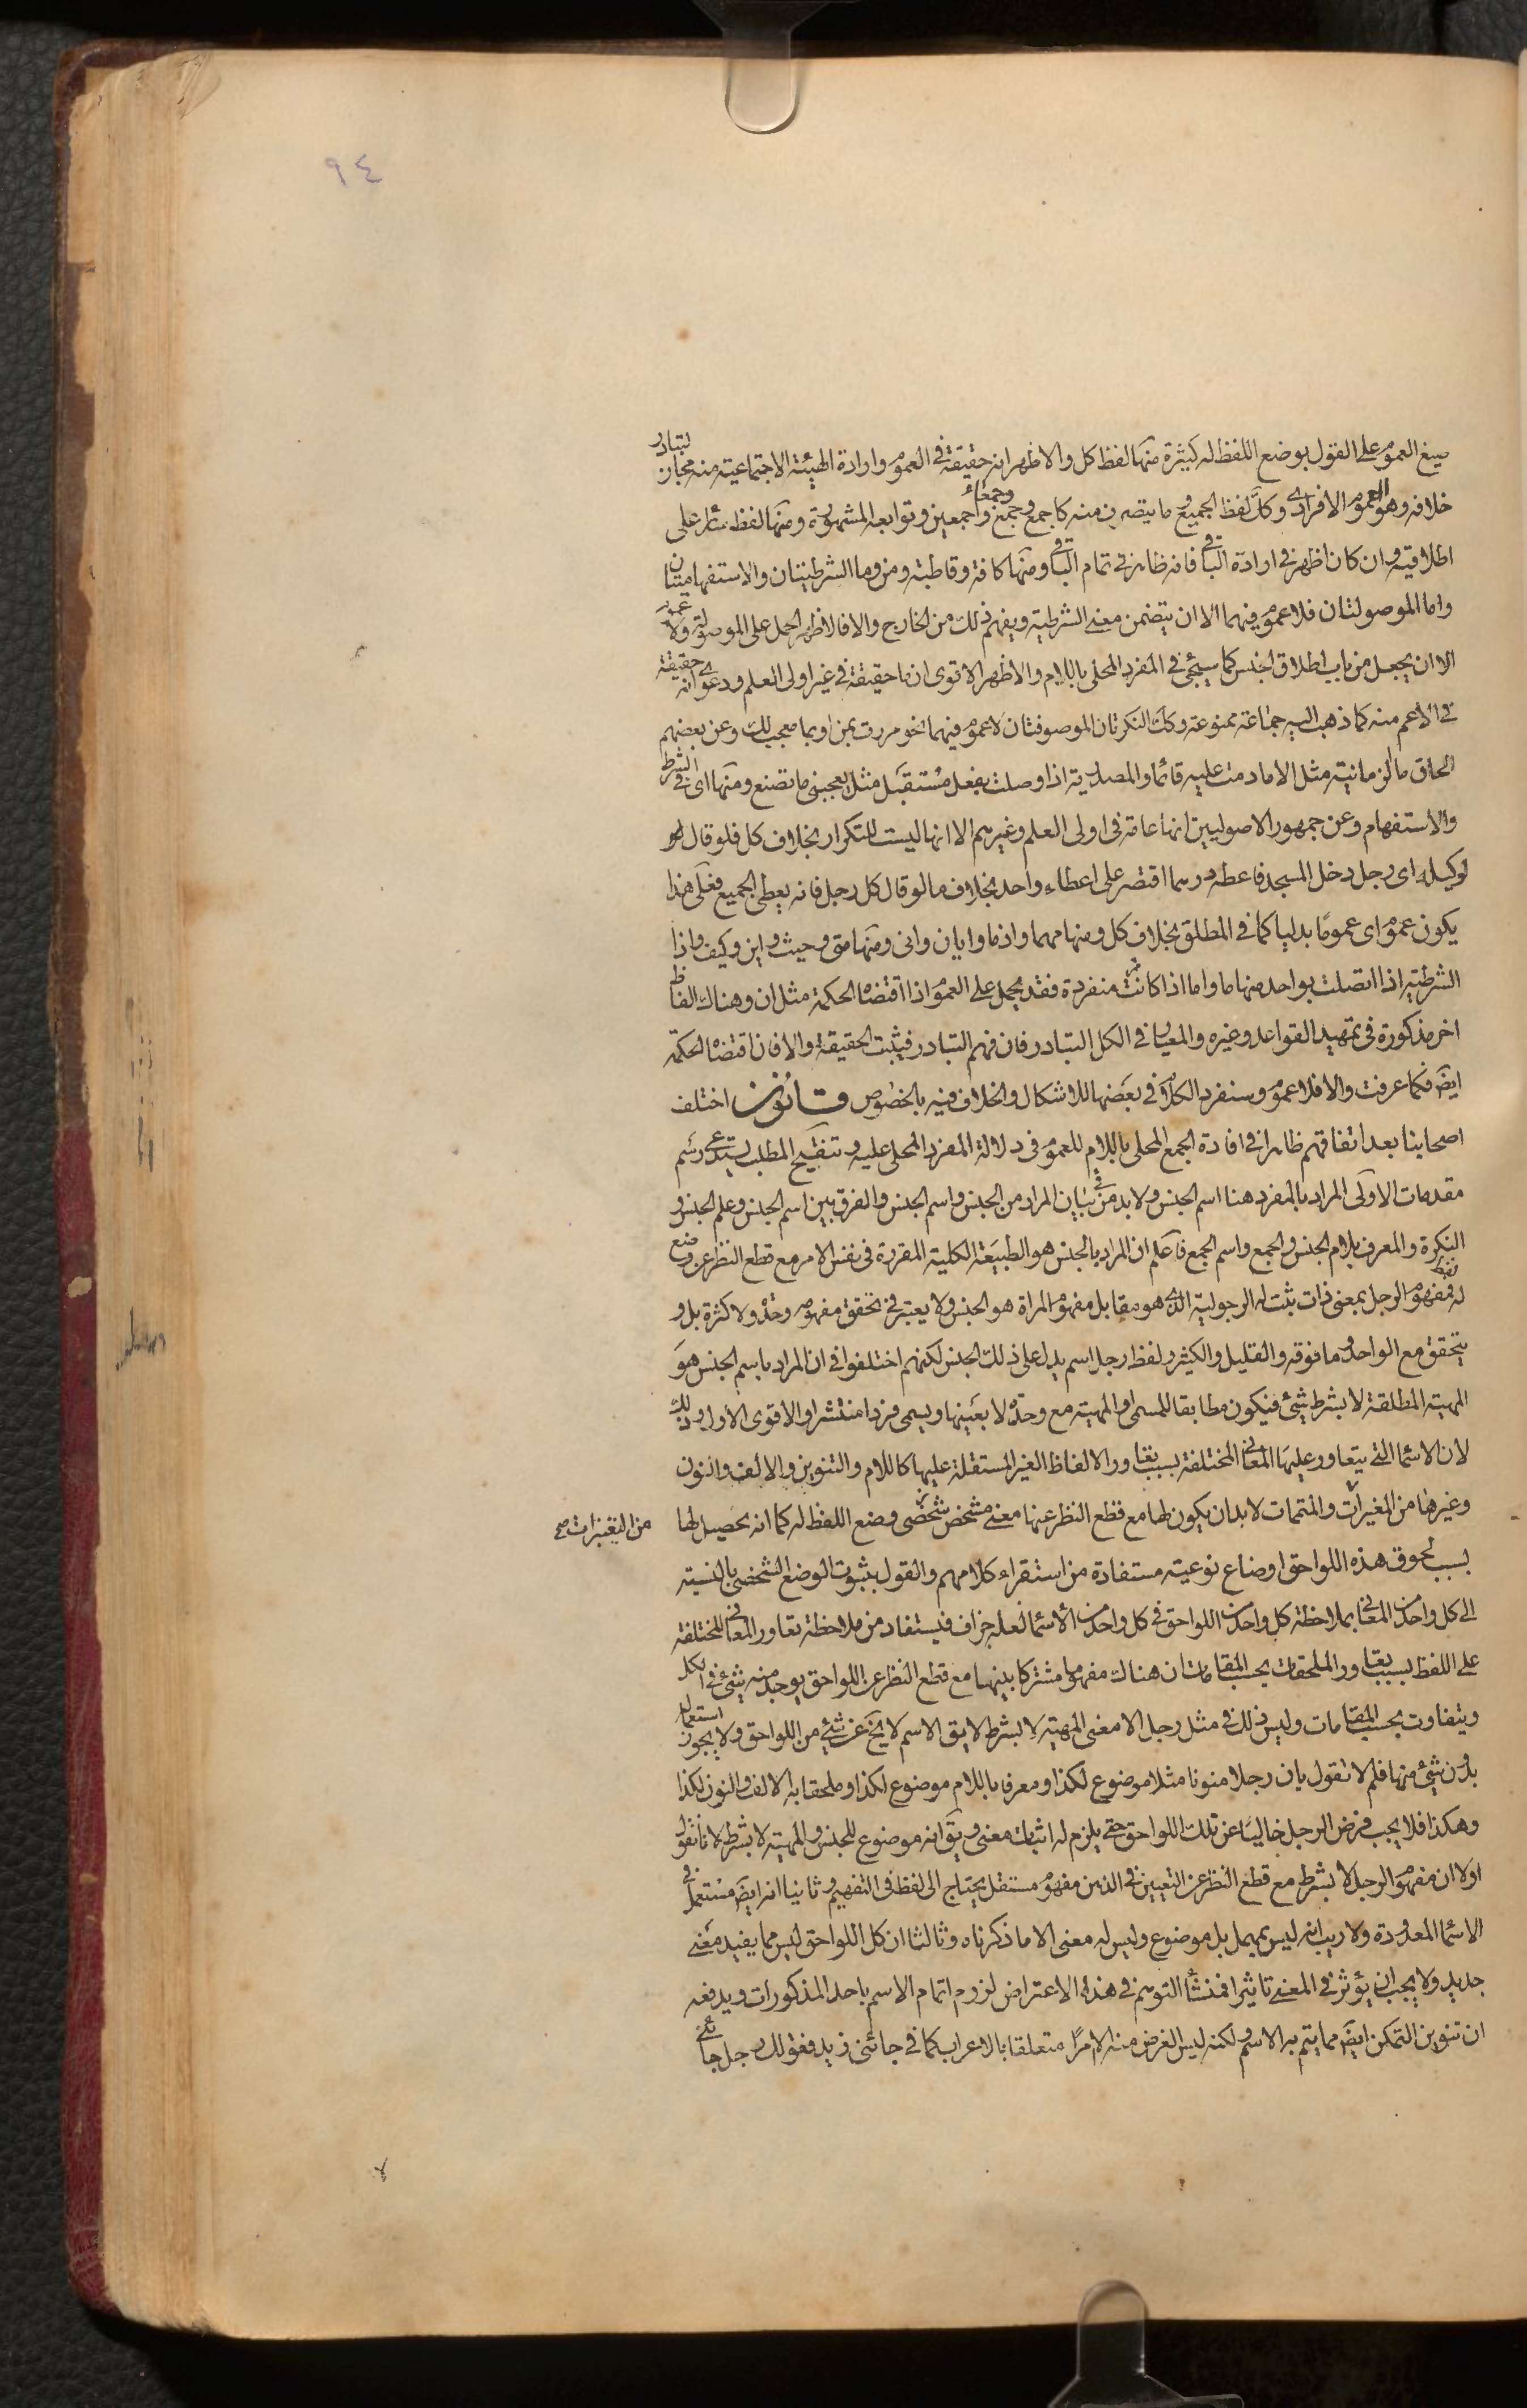 ٩٤
صيغ العموم على القول بوضع اللفظ له كثيرة منها لفظ كل والاظهر انه حقيقة في العموم وارادة الهيئة الاجتماعية منه مجاز لتبادر
خلافه وهو العموم الافرادي وكك لفظ الجميع وما يتصرف منه كاجمع وجمع وجمعاء واجمعين وتوابعه المشهورة ومنها لفظ سائر على
اطلاقيه وان كان اظهر في ارادة الباقي فانه ظاهر في تمام الباقي ومنها كافة وقاطبة ومن وما الشرطيتان والاستفهاميتان
واما الموصولتان فلا عموم فيهما الا ان يتضمن معنى الشرطية ويفهم ذلك من الخارج والا فالاظهر الحمل على الموصولة ولا عموم
الا ان يجعل من باب اطلاق الجنس كما سيجئ في المفرد المحلى باللام والاظهر الاقوى ان ما حقيقة في غير اولى العلم ودعوى انه حقيقة
في الاعم منه كما ذهب اليه جماعة ممنوعة وكك النكرتان الموصوفتان لا عموم فيهما نحو مررت بمن او بما معجب لك وعن بعضهم
الحاق ما الزمانية مثل الا ما دمت عليه قائما والمصدرية اذا وصلت بفعل مستقبل مثل يعجبنى ما تصنع ومنها اى في الشرط
والاستفهام وعن جمهور الاصوليين انها عامة في اولى العلم وغيرهم الا انها ليست للتكرار بخلاف كل فلو قال
لوكيله اى رجل دخل المسجد فاعطه درهما اقتصر على اعطاء واحد بخلاف ما لو قال كل رجل فانه يعطى الجميع فعلى هذا
يكون عموم اى عموما بدليا كما في المطلق بخلاف كل ومنها مهما واذما وايان وانى ومنها متى وحيث واين وكيف واذا
الشرطية اذا اتصلت بواحد منها ما واما اذا كانت منفردة فقد يحمل على العموم اذا اقتضاه الحكمة مثل ان وهناك الفاظ
اخر مذكورة في تمهيد القواعد وغيره والمعيار في الكل التبادر فان فهم التبادر فيثبت الحقيقة والا فان اقتضاه الحكمة
ايضَ فكما عرفت والا فلا عموم وسنفرد الكلام في بعضها للاشكال والخلاف فيه بالخصوص قانون اختلف
اصحابنا بعد اتفاقهم ظاهرا في افادة الجمع المحلى باللام للعموم في دلالة المفرد المحلى عليه وتنقيح المطلب يستدعى رسم
مقدمات الاولى المراد بالمفرد هنا اسم الجنس ولا بد من بيان المراد من الجنس واسم الجنس والفرق بين اسم الجنس وعلم الجنس و
النكرة والمعرف بلام الجنس والجمع واسم الجمع فاعلم ان المراد بالجنس هو الطبيعة الكلية المقررة في نفس الامر مع قطع النظر عن وضع لفظ
له فمفهوم الرجل بمعنى ذات ثبت له الرجولية الذى هو مقابل مفهوم المراة هو الجنس ولا يعتبر في تحقق مفهومه وحدة ولا كثرة بل و
يتحقق مع الواحد وما فوقه والقليل والكثير ولفظ رجل اسم يدل على ذلك الجنس لكنهم اختلفوا في ان المراد باسم الجنس هو
المهية المطلقة لا بشرط شئ فيكون مطابقا للمسمى او المهية مع وحدة لا بعينها ويسمى فردا منتشرا والاقوى الاول وذلك
لان الاسما التى يتعاور عليها المعانى المختلفة بسبب تعاور الالفاظ الغير المستقلة عليها كاللام والتنوين والالف والنون
وغيرها من المغيرات والمتممات لا بد ان يكون لها مع قطع النظر عنها معنى مشخص شخصى وضع اللفظ له كما انه يحصل لها
من التغييرات صح
بسبب لحوق هذه اللواحق اوضاع نوعية مستفادة من استقراء كلامهم والقول بثبوت الوضع الشخصى بالنسبة
الى كل واحد من المعانى بملاحظة كل واحد من اللواحق في كل واحد من الاسما لعله جزاف فيستفاد من ملاحظة تعاور المعانى المختلفة
على اللفظ بسبب تعاور الملحقات بحسب المقامات ان هناك مفهوما مشتركا بينها مع قطع النظر عن اللواحق يوجد منه شئ في الكل
ويتفاوت بحسب المقامات وليس ذلك في مثل رجل الا معنى المهية لا بشرط لا يق الاسم لا يخ عن شئ من اللواحق ولا يجوز استعماله
بدون شئ منها فلم لا تقول بان رجلا منونا مثلا موضوع لكذا ومعرفا باللام موضوع لكذا وملحقا به الالف والنون لكذا
وهكذا فلا يجب فرض الرجل خاليا عن تلك اللواحق حتى يلزم له اثبات معنى ويق انه موضوع للجنس والمهية لا بشرط لانا نقول
اولا ان مفهوم الرجل لا بشرط مع قطع النظر عن التعيين في الذهن مفهوم مستقل يحتاج الى لفظ في التفهيم وثانيا انه ايضَ مستعمل في
الاسما المعدودة ولا ريب انه ليس بمهمل بل موضوع وليس له معنى الا ما ذكرناه وثالثا ان كل اللواحق ليس مما يفيد معنى
جديد ولا يجب ان يؤثر في المعنى تاثيرا فمنشأ التوهم في هذا الاعتراض لزوم اتمام الاسم باحد المذكورات ويدفعه
ان تنوين التمكن ايضَ مما يتم به الاسم ولكنه ليس الغرض منه الا امرا متعلقا بالاعراب كما في جائنى زيد فقولك رجل جائنى